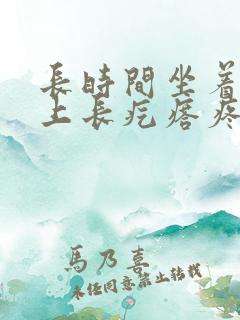 長時間坐着
上長疙瘩疼
馬乃喜
未经同意禁止转载